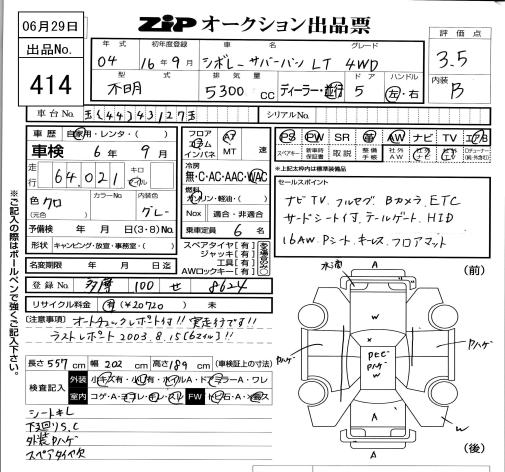 06月29日
出品No.
414
ZIP オークション出品票
評価点
3.5
内装
B
年式 初年度登録 車名 グレード
04 16年9月 シボレー サバーバン LT 4WD
型式 排気量 ドア ハンドル
不明 5300 CC ディーラー・並行 5 左・右
車台No. シリアルNo.
車歴 自家用・レンタ・( )
車検 6年 9月
走行 64,021 キロ マイル
色 クロ
(元色)
カラーNo. 内装色
グレー
予備検 年 月 日 (3・8) No.
形状 キャンピング・放宣・事務室・( )
名変期限 年 月 日迄
フロア コラム インパネ
A7
MT 速
冷房
無・C・AC・AAC・WAC
燃料
ガソリン・軽油・( )
Nox 適合・非適合
乗車定員 6 名
スペアタイヤ[有]
ジャッキ[有]
工具[有]
AWロックキー[有]
PS PW SR 革 AW ナビ TV エアB
スペアキー 新車時保証書 取説 整備手帳 社外AW 社外ナビ 社外TV
※上記太枠内は標準装備品
セールスポイント
ナビ TV フルセグ Bカメラ ETC
サードシート付 テールゲート HID
16AW Pシート キーレス フロアマット
登録No. 多摩 100 せ 8624
リサイクル料金 有(¥20720) 未
(注意事項)
オートチェックレポート付!! 実走行です!!
ラストレポート 2003.8.15 (6マイル)!!
長さ 557 cm 幅 202 cm 高さ 189 cm (車検証上の寸法)
検査記入 外装 小キズ有・小凹有・ホイルA・ドアミラーA・ワレ
室内 コゲ・A・ヨゴレ・キレ・スレ FW トビ石・A・×
シートキレ
下廻りS.C
外装PハゲW
スペアタイヤ欠
※ご記入の際はボールペンで強くご記入下さい。
(前)
水滴
A
W
×
PEC
Pハゲ
W
Pハゲ
Pハゲ
W
A
(後)